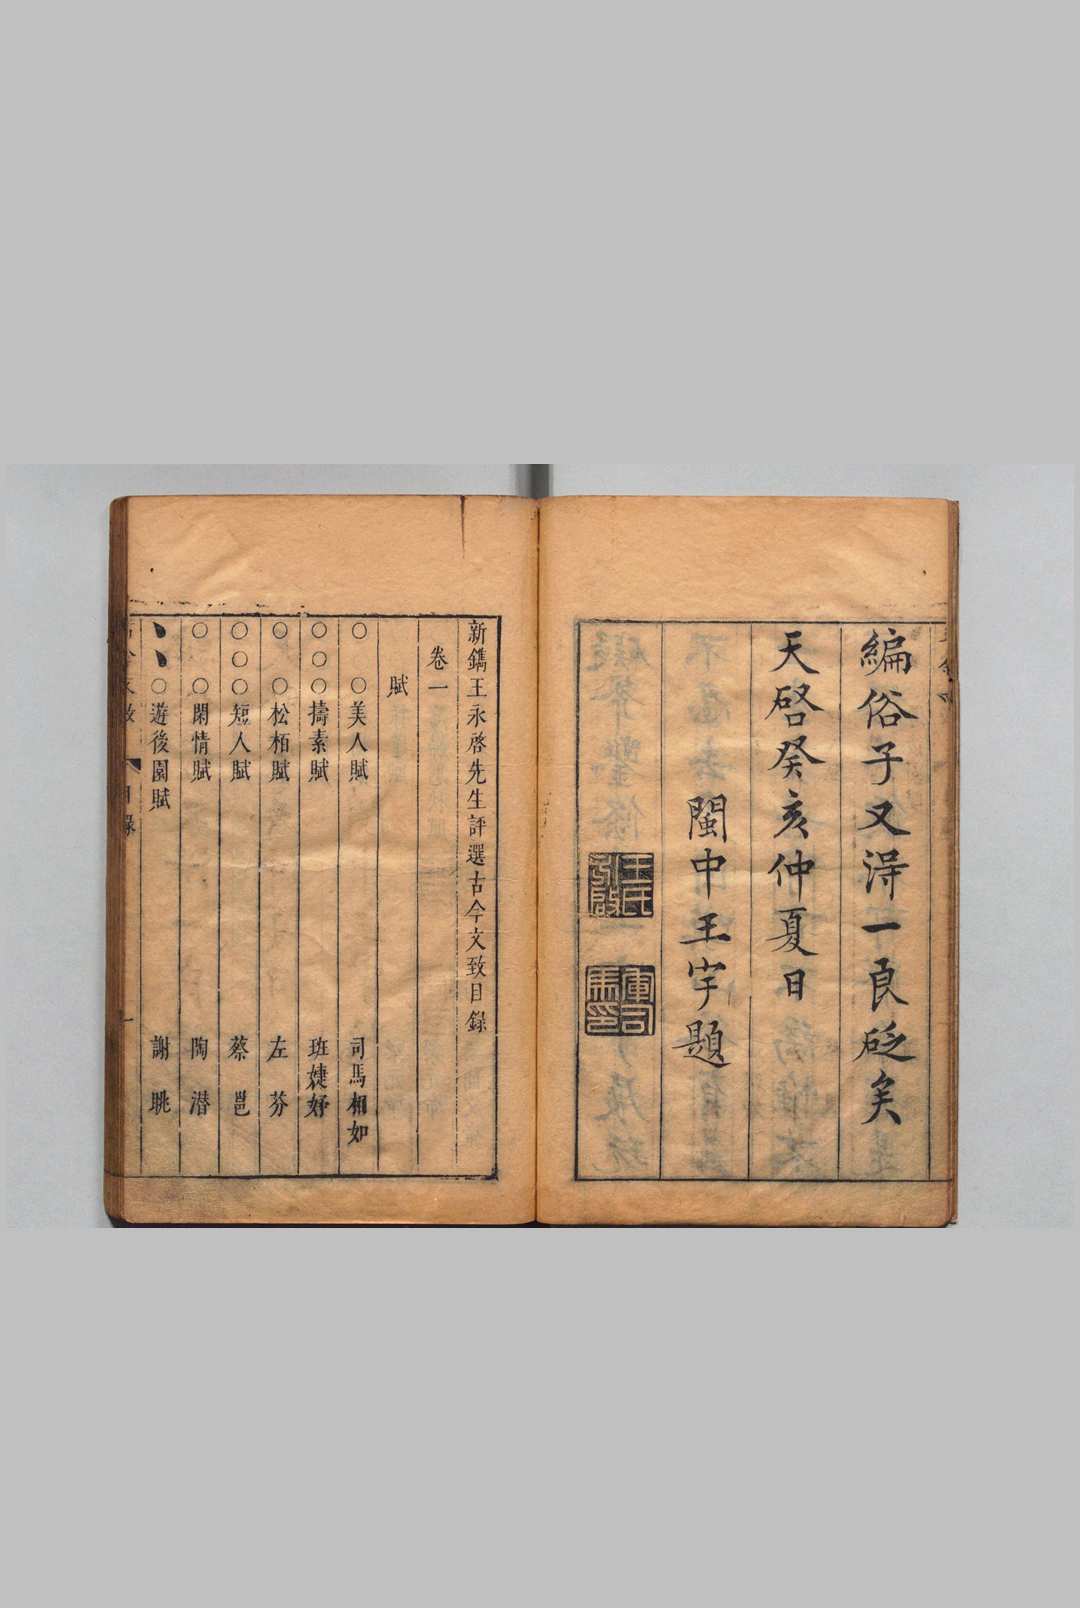 編俗子又淂一良砭矣
天啓癸亥仲夏日
閩中王宇題
王氏永啟
軍司馬印
新鐫王永啓先生評選古今文致目錄
卷一
賦
○ ○美人賦 司馬相如
○○○擣素賦 班婕妤
○ ○松柏賦 左芬
○○○短人賦 蔡邕
○ ○閑情賦 陶潜
○遊後園賦 謝眺
目錄
一